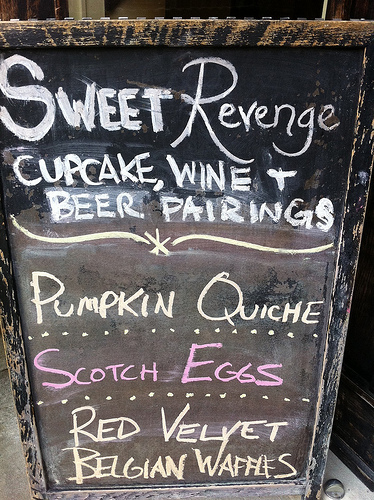 Sweet Revenge
Cupcake, Wine +
Beer Pairings
Pumpkin Quiche
Scotch Eggs
Red Velvet
Belgian Waffles